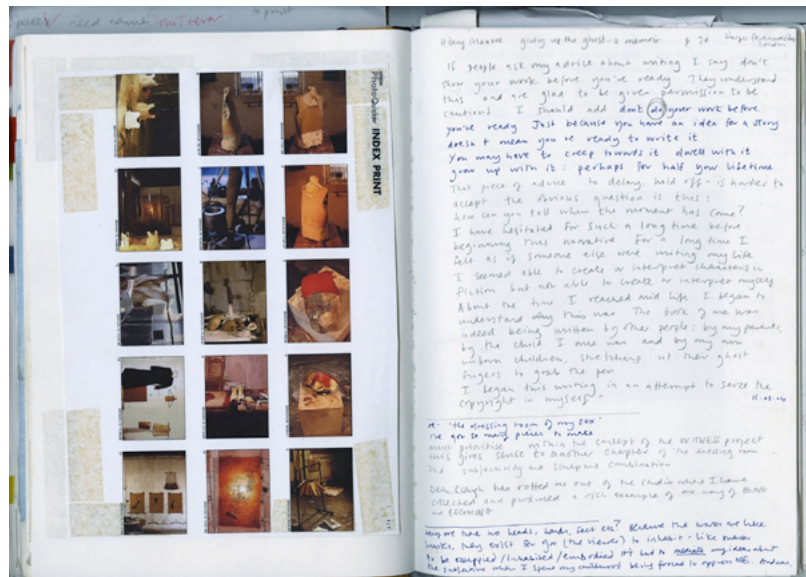 Spaces need name
to print
Photo Quicker INDEX PRINT
Hilary Mantel giving up the ghost - a memoir p 70 Harper Perennial
London
If people ask my advice about writing I say don't
show your work before you're ready They understand
this and are glad to be given permission to be
cautious I should add don't do your work before
you're ready Just because you have an idea for a story
doesn't mean you're ready to write it
You may have to creep towards it dwell with it
grow up with it: perhaps for half your lifetime
That piece of advice to delay, hold off - is harder to
accept the obvious question is this:
how can you tell when the moment has come?
I have hesitated for such a long time before
beginning this narrative For a long time I
felt as if someone else were writing my life
I seemed able to create or interpret characters in
fiction but not able to create or interpret myself
About the time I reached mid life I began to
understand why this was The book of me was
indeed being written by other people: by my parents,
by the child I once was and by my own
unborn children, stretching out their ghost
fingers to grab the pen
I began this writing in an attempt to seize the
copyright in myself.
re - 'the dressing room of my sex'
I've got so many pieces to make
must prioritise within the context of the WITNESS project
this gives sense to another chapter of the dressing room
subjectivity and sculpture combination
has rotted me out of the studio where I have
collected and produced a rich example of one way of BEING
or BECOMING
Why are there no heads, hands, feet etc? Because the works are like
they exist for you (the viewer) to inhabit - like
to be occupied / inhabited / embodied my ideas about
the subjective when I spent my childhood being forced to oppress ME.